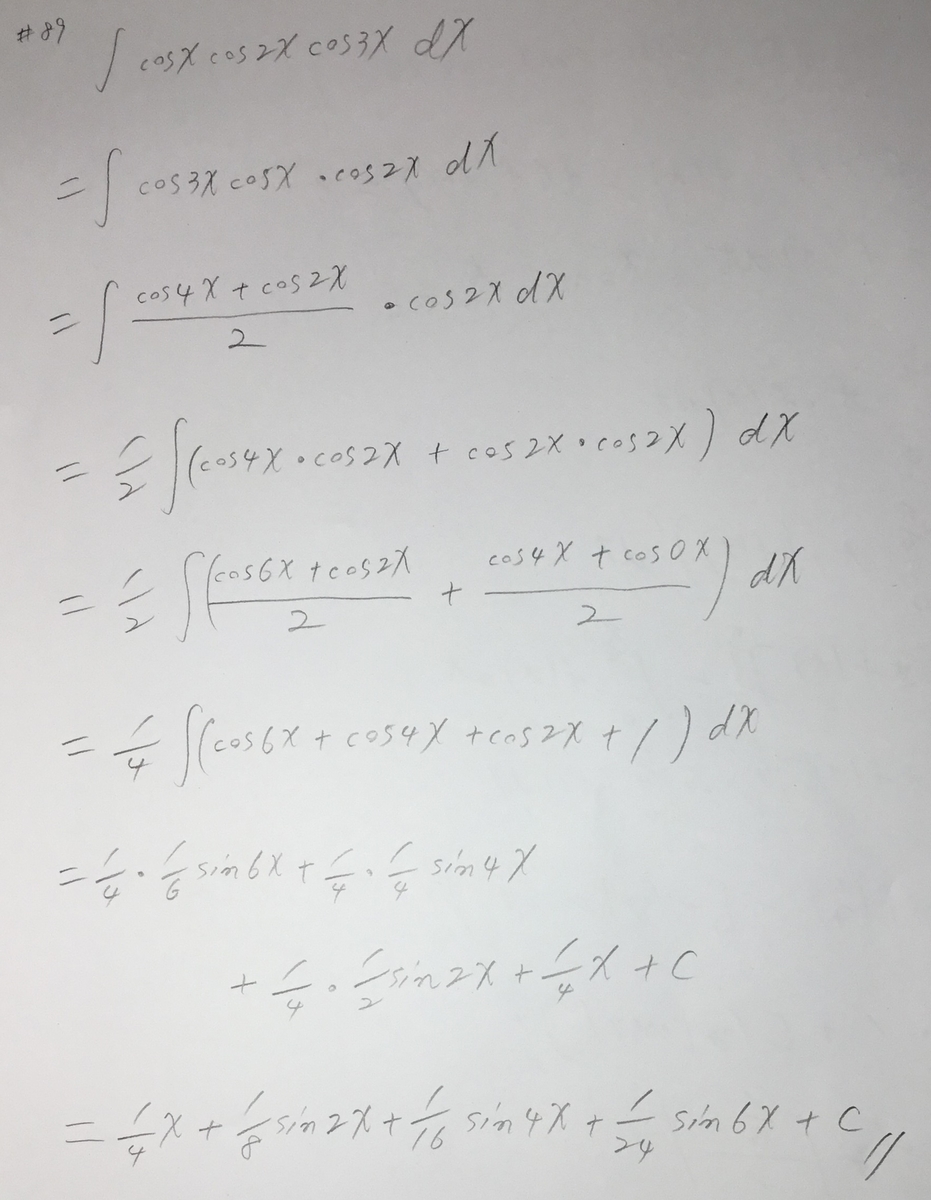 #89 ∫ cosx cos2x cos3x dx
= ∫ cos3x cosx · cos2x dx
= ∫ (cos4x + cos2x)/2 · cos2x dx
= 1/2 ∫ (cos4x · cos2x + cos2x · cos2x) dx
= 1/2 ∫ ((cos6x + cos2x)/2 + (cos4x + cos0x)/2) dx
= 1/4 ∫ (cos6x + cos4x + cos2x + 1) dx
= 1/4 · 1/6 sin6x + 1/4 · 1/4 sin4x
+ 1/4 · 1/2 sin2x + 1/4 x + C
= 1/4 x + 1/8 sin2x + 1/16 sin4x + 1/24 sin6x + C //